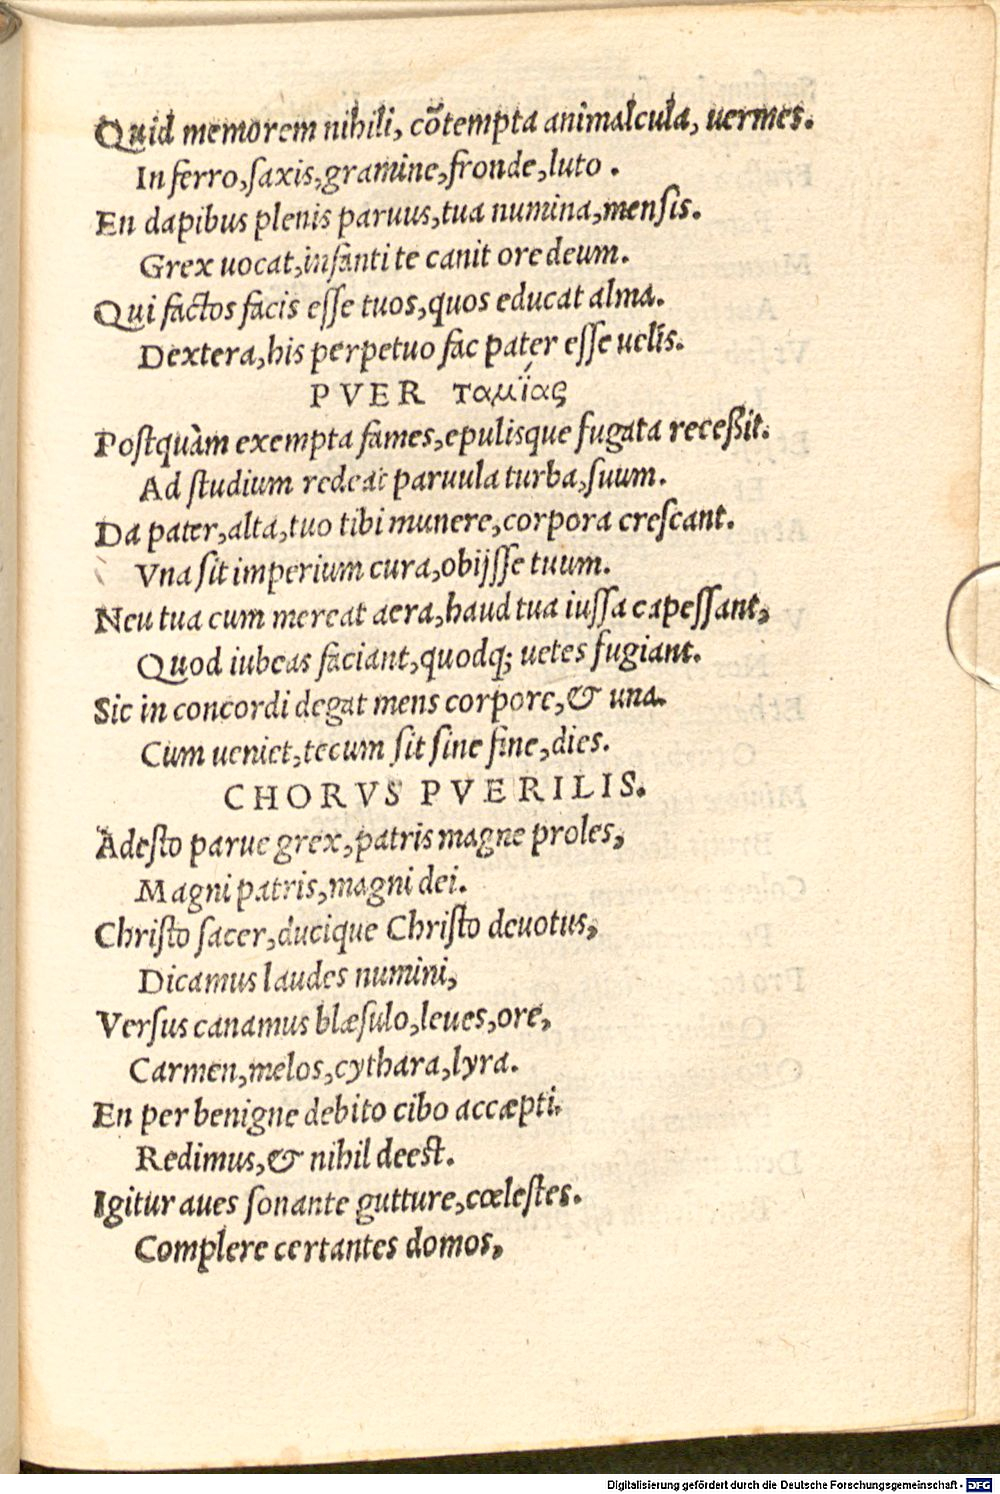 Quid memorem nihili, cõtempta animalcula, uermes.
In ferro, saxis, gramine, fronde, luto.
En dapibus plenis paruus, tua numina, mensis.
Grex uocat, infanti te canit ore deum.
Qui factos facis esse tuos, quos educat alma.
Dextera, his perpetuo fac pater esse uelis.
PVER ταμίας
Postquàm exempta fames, epulisque fugata receßit.
Ad studium redeat paruula turba, suum.
Da pater, alta, tuo tibi munere, corpora crescant.
Vna sit imperium cura, obijsse tuum.
Neu tua cum mereat aera, haud tua iussa capessant,
Quod iubeas faciant, quodq; uetes fugiant.
Sic in concordi degat mens corpore, & una.
Cum ueniet, tecum sit sine fine, dies.
CHORVS PVERILIS.
Adesto parue grex, patris magne proles,
Magni patris, magni dei.
Christo sacer, ducique Christo deuotus,
Dicamus laudes numini,
Versus canamus blæsulo, leues, ore,
Carmen, melos, cythara, lyra.
En per benigne debito cibo accæpti.
Redimus, & nihil deest.
Igitur aues sonante gutture, cœlestes.
Complere certantes domos,
Digitalisierung gefördert durch die Deutsche Forschungsgemeinschaft - DFG